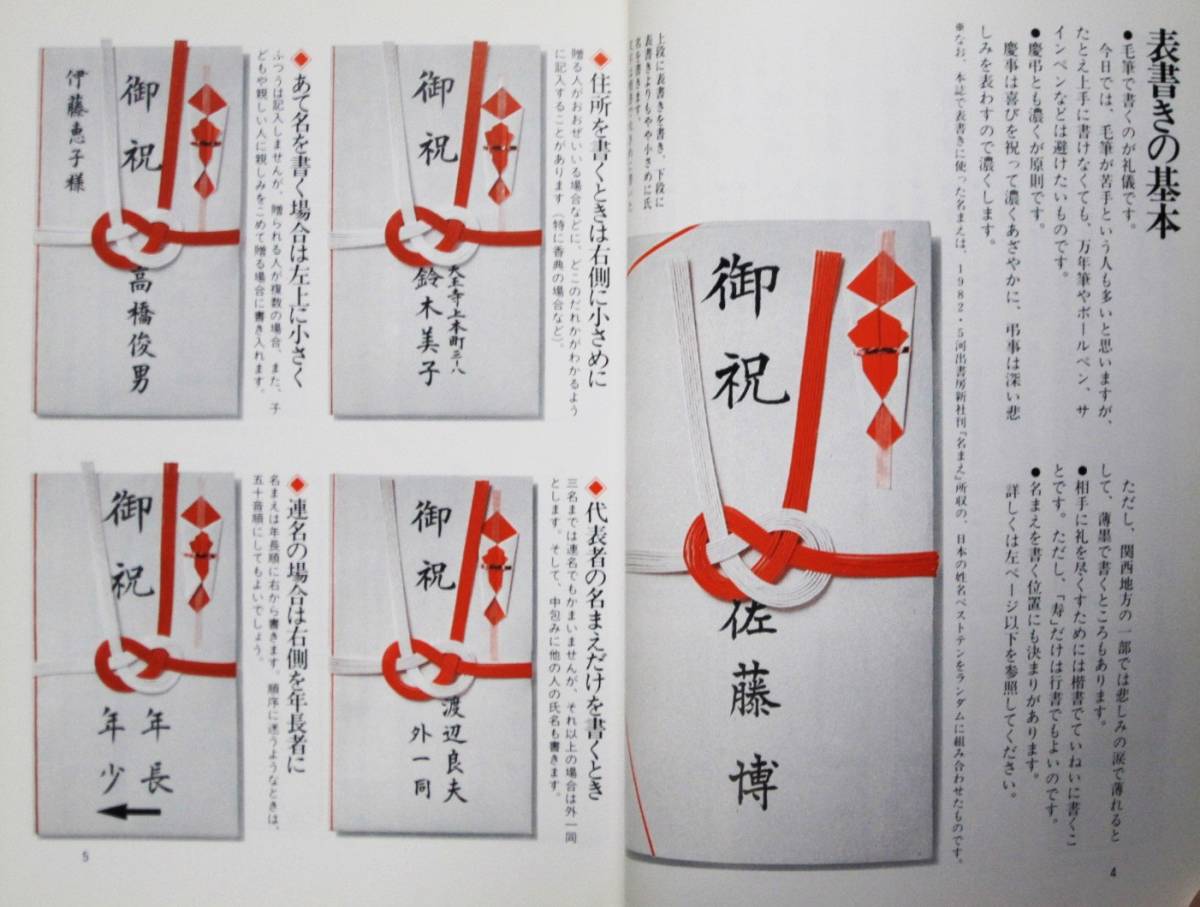 表書きの基本
●毛筆で書くのが礼儀です。
今日では、毛筆が苦手という人も多いと思いますが、
たとえ上手に書けなくても、万年筆やボールペン、サ
インペンなどは避けたいものです。
●慶弔とも濃くが原則です。
慶事は喜びを祝って濃くあざやかに、弔事は深い悲
しみを表わすので濃くします。
ただし、関西地方の一部では悲しみの涙で薄れると
して、薄墨で書くところもあります。
●相手に礼を尽くすためには楷書でていねいに書くこ
とです。ただし、「寿」だけは行書でもよいのです。
●名まえを書く位置にも決まりがあります。
詳しくは左ページ以下を参照してください。
※なお、本誌で表書きに使った名まえは、1982・5河出書房新社刊「名まえ」所収の、日本の姓名ベストテンをランダムに組み合わせたものです。
御祝
佐藤博
上段に表書きを書き、下段に
表書きよりもやや小さめに氏
名を書きます。
4
◆住所を書くときは右側に小さめに
贈る人がおおぜいいる場合などに、どこのだれかがわかるよう
に記入することがあります(特に香典の場合など)。
御祝
天王寺上本町三ー八
鈴木美子
◆あて名を書く場合は左上に小さく
ふつうは記入しませんが、贈られる人が複数の場合、また、子
どもや親しい人に親しみをこめて贈る場合に書き入れます。
御祝
伊藤恵子様
高橋俊男
◆代表者の名まえだけを書くとき
三名までは連名でもかまいませんが、それ以上の場合は外一同
とします。そして、中包みに他の人の氏名も書きます。
御祝
渡辺良夫
外一同
◆連名の場合は右側を年長者に
名まえは年長順に右から書きます。順序に迷うようなときは、
五十音順にしてもよいでしょう。
御祝
年長
年少
5